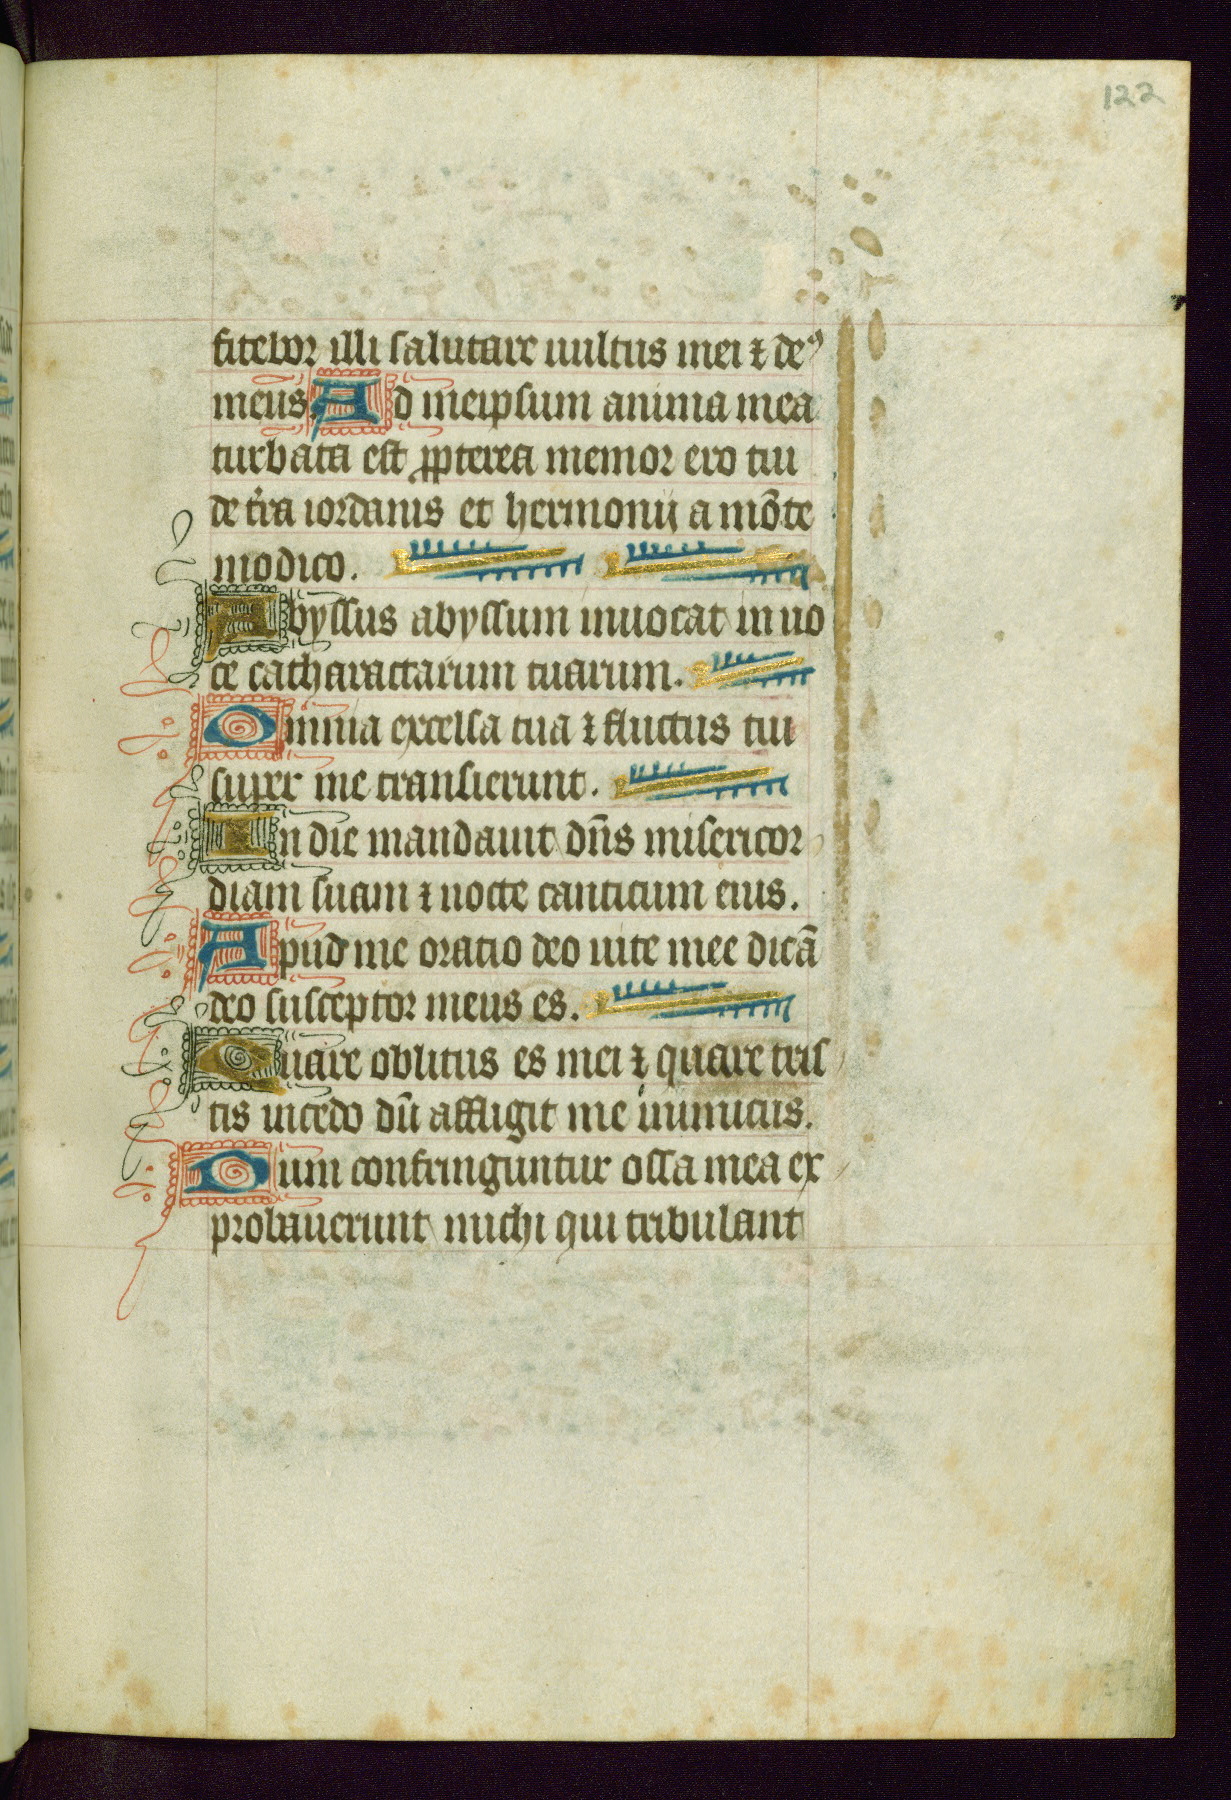 122
fitebor illi salutare uultus mei ⁊ deꝰ
meus. Ad meipsum anima mea
turbata est ꝓpterea memor ero tui
de tr̃a iordanis et hermonij a mõte
modico.
Abyssus abyssum inuocat in uo
ce catharactarum tuarum.
Omnia excelsa tua ⁊ fluctus tui
super me transierunt.
In die mandauit dñs misericor
diam suam ⁊ nocte canticum eius.
Apud me oratio deo uite mee dicã
deo susceptor meus es.
Quare oblitus es mei ⁊ quare tris
tis incedo dũ affligit me inimicus.
Dum confringuntur ossa mea ex
probauerunt michi qui tribulant